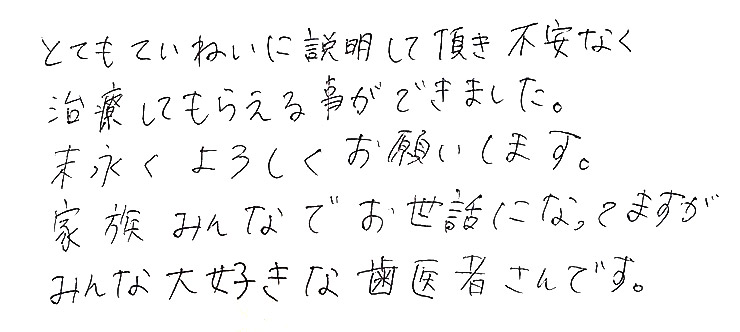 とてもていねいに説明して頂き不安なく
治療してもらえる事ができました。
末永くよろしくお願いします。
家族みんなでお世話になってますが
みんな大好きな歯医者さんです。